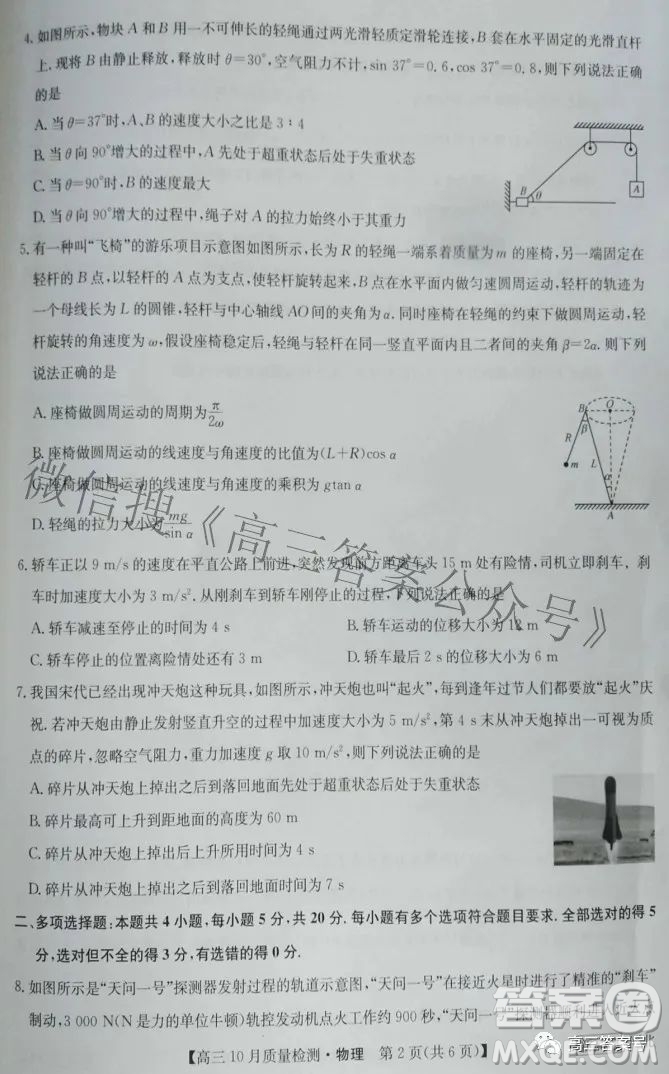 4. 如图所示,物块 A 和 B 用一不可伸长的轻绳通过两光滑轻质定滑轮连接,B 套在水平固定的光滑直杆
上.现将 B 由静止释放,释放时 θ=30°,空气阻力不计,sin 37°=0.6,cos 37°=0.8,则下列说法正确
的是
A. 当 θ=37°时,A、B 的速度大小之比是 3:4
B. 当 θ 向 90°增大的过程中,A 先处于超重状态后处于失重状态
C. 当 θ=90°时,B 的速度最大
D. 当 θ 向 90°增大的过程中,绳子对 A 的拉力始终小于其重力
B
θ
A
5. 有一种叫“飞椅”的游乐项目示意图如图所示,长为 R 的轻绳一端系着质量为 m 的座椅,另一端固定在
轻杆的 B 点,以轻杆的 A 点为支点,使轻杆旋转起来,B 点在水平面内做匀速圆周运动,轻杆的轨迹为
一个母线长为 L 的圆锥,轻杆与中心轴线 AO 间的夹角为 α.同时座椅在轻绳的约束下做圆周运动,轻
杆旋转的角速度为 ω,假设座椅稳定后,轻绳与轻杆在同一竖直平面内且二者间的夹角 β=2α.则下列
说法正确的是
A. 座椅做圆周运动的周期为 π/2ω
B. 座椅做圆周运动的线速度与角速度的比值为(L+R)cos α
C. 座椅做圆周运动的线速度与角速度的乘积为 gtan α
D. 轻绳的拉力大小为 mg/sin α
B
O
β
R
L
m
α
A
6. 轿车正以 9 m/s 的速度在平直公路上前进,突然发现前方距离车头 15 m 处有险情,司机立即刹车,刹
车时加速度大小为 3 m/s².从刚刹车到轿车刚停止的过程,下列说法正确的是
A. 轿车减速至停止的时间为 4 s
B. 轿车运动的位移大小为 12 m
C. 轿车停止的位置离险情处还有 3 m
D. 轿车最后 2 s 的位移大小为 6 m
7. 我国宋代已经出现冲天炮这种玩具,如图所示,冲天炮也叫“起火”,每到逢年过节人们都要放“起火”庆
祝.若冲天炮由静止发射竖直升空的过程中加速度大小为 5 m/s²,第 4 s 末从冲天炮上掉出一可视为质
点的碎片,忽略空气阻力,重力加速度 g 取 10 m/s²,则下列说法正确的是
A. 碎片从冲天炮上掉出之后到落回地面先处于超重状态后处于失重状态
B. 碎片最高可上升到距地面的高度为 60 m
C. 碎片从冲天炮上掉出后上升所用时间为 4 s
D. 碎片从冲天炮上掉出之后到落回地面时间为 7 s
二、多项选择题:本题共 4 小题,每小题 5 分,共 20 分.每小题有多个选项符合题目要求.全部选对的得 5
分,选对但不全的得 3 分,有选错的得 0 分.
8. 如图所示是“天问一号”探测器发射过程的轨道示意图,“天问一号”在接近火星时进行了精准的“刹车”
制动,3 000 N(N 是力的单位牛顿)轨控发动机点火工作约 900 秒,“天问一号”
【高三 10 月质量检测·物理 第 2 页(共 6 页)】
微信搜《高三答案公众号》
答案圈
高三答案号
MXQE.COM